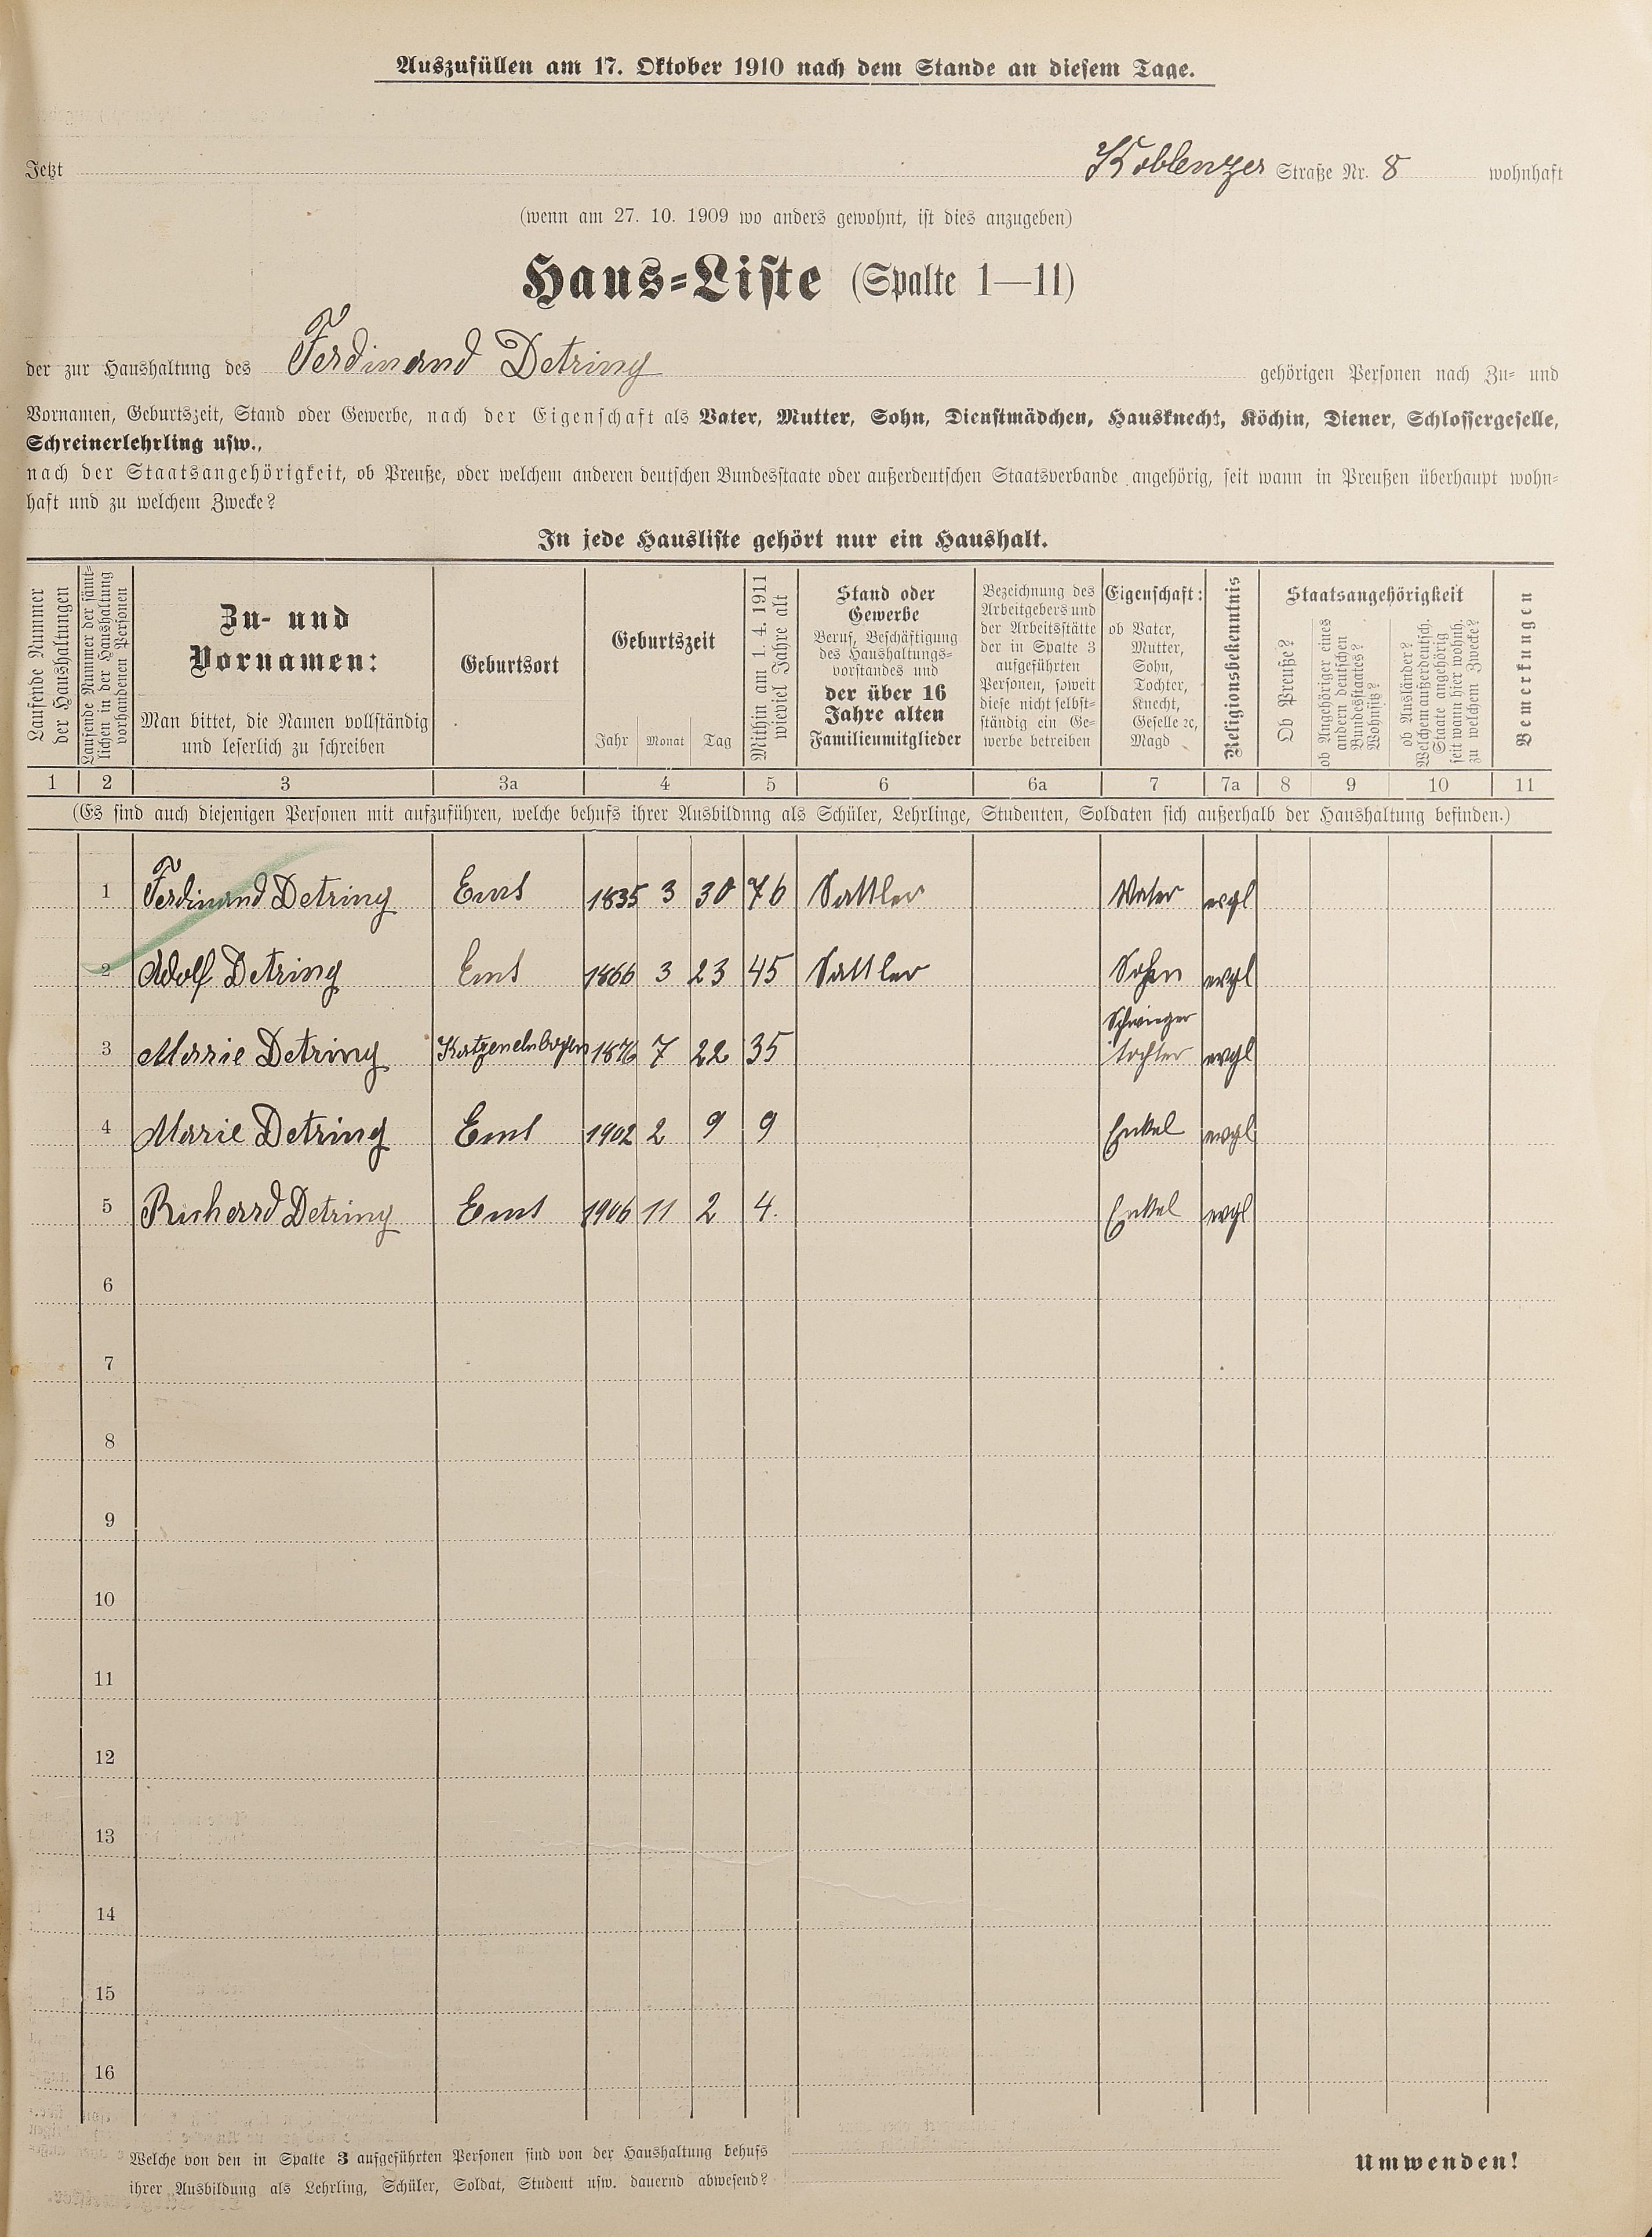 Auszufüllen am 17. Oktober 1910 nach dem Stande an diesem Tage.
Jetzt Koblenzer Straße Nr. 8 wohnhaft
(wenn am 27. 10. 1909 wo anders gewohnt, ist dies anzugeben)
Haus-Liste (Spalte 1—11)
der zur Haushaltung des Ferdinand Detring gehörigen Personen nach Zu- und
Vornamen, Geburtszeit, Stand oder Gewerbe, nach der Eigenschaft als Vater, Mutter, Sohn, Dienstmädchen, Hausknecht, Köchin, Diener, Schlossergeselle,
Schreinerlehrling usw.,
nach der Staatsangehörigkeit, ob Preuße, oder welchem anderen deutschen Bundesstaate oder außerdeutschen Staatsverbande angehörig, seit wann in Preußen überhaupt wohn-
haft und zu welchem Zwecke?
In jede Hausliste gehört nur ein Haushalt.
Laufende Nummer
der Haushaltungen
Laufende Nummer der sämt-
lichen in der Haushaltung
vorhandenen Personen
Zu- und
Vornamen:
Man bittet, die Namen vollständig
und leserlich zu schreiben
Geburtsort
Geburtszeit
Jahr Monat Tag
Mithin am 1. 4. 1911
wieviel Jahre alt
Stand oder
Gewerbe
Beruf, Beschäftigung
des Haushaltungs-
vorstandes und
der über 16
Jahre alten
Familienmitglieder
Bezeichnung des
Arbeitgebers und
der Arbeitsstätte
der in Spalte 3
aufgeführten
Personen, soweit
diese nicht selbst-
ständig ein Ge-
werbe betreiben
Eigenschaft:
ob Vater,
Mutter,
Sohn,
Tochter,
Knecht,
Geselle ꝛc,
Magd
Religionsbekenntnis
Staatsangehörigkeit
Ob Preuße?
ob Angehöriger eines
andern deutschen
Bundesstaates?
Wohnsitz?
ob Ausländer?
Welchem außerdeutsch.
Staate angehörig
seit wann hier wohnh.
zu welchem Zwecke?
Bemerkungen
1 2 3 3a 4 5 6 6a 7 7a 8 9 10 11
(Es sind auch diejenigen Personen mit aufzuführen, welche behufs ihrer Ausbildung als Schüler, Lehrlinge, Studenten, Soldaten sich außerhalb der Haushaltung befinden.)
1 Ferdinand Detring Ems 1835 3 30 76 Sattler Vater evgl
2 Adolf Detring Ems 1866 3 23 45 Sattler Sohn evgl
3 Marie Detring Katzenelnbogen 1876 7 22 35 Schwieger
tochter evgl
4 Marie Detring Ems 1902 2 9 9 Enkel evgl
5 Richard Detring Ems 1906 11 2 4. Enkel evgl
6
7
8
9
10
11
12
13
14
15
16
Welche von den in Spalte 3 aufgeführten Personen sind von der Haushaltung behufs
ihrer Ausbildung als Lehrling, Schüler, Soldat, Student usw. dauernd abwesend?
Umwenden!